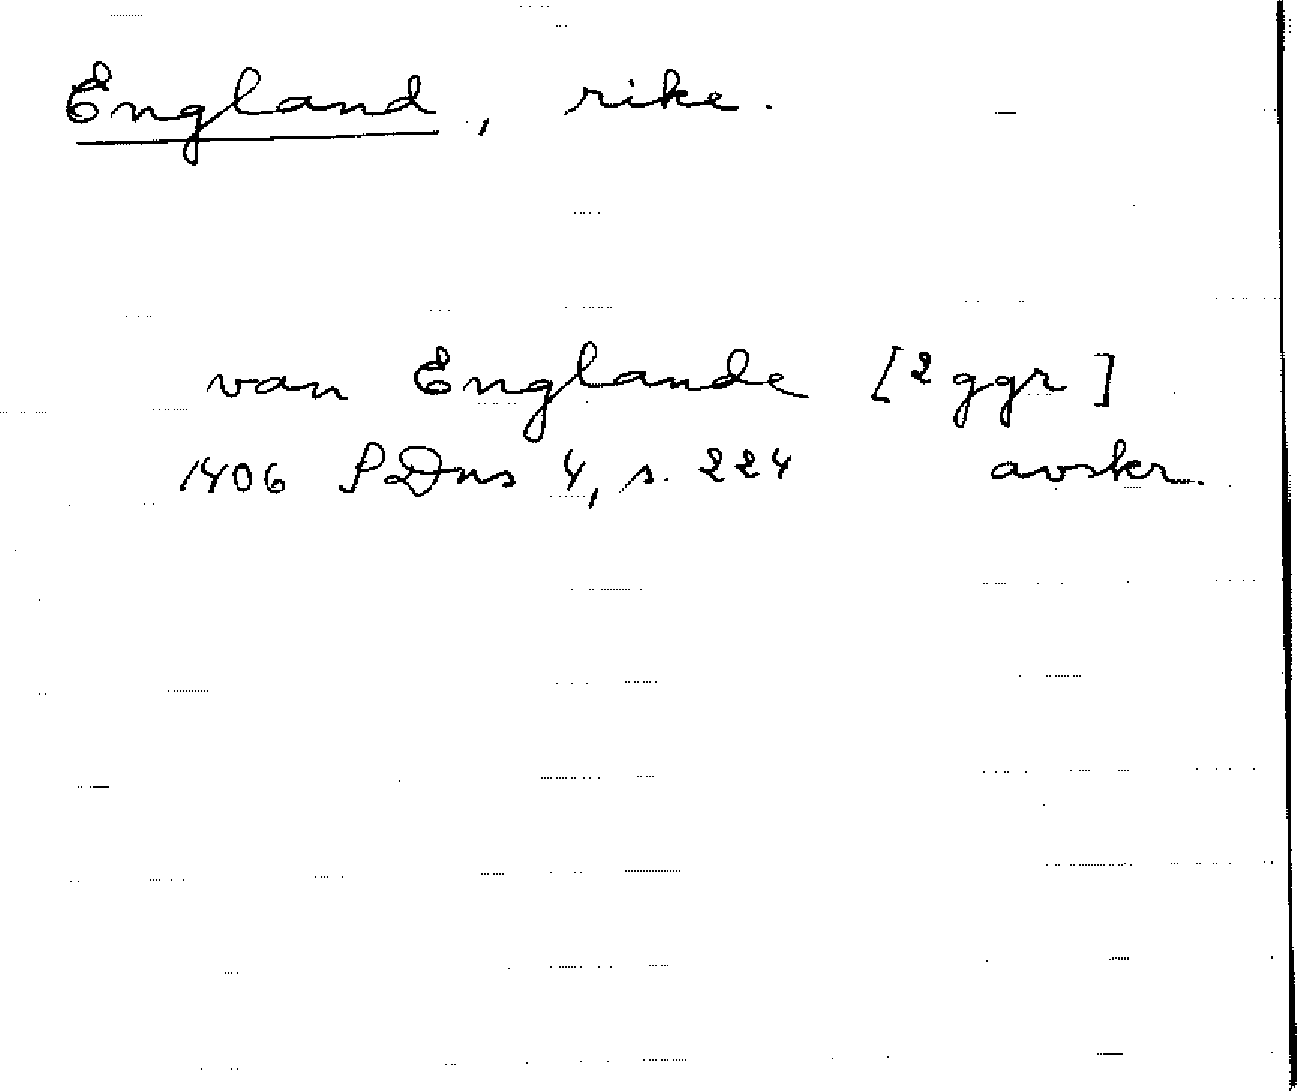 England, rike.
van Englande [2 ggr]
1406 SDns 4, s. 224 avskr.